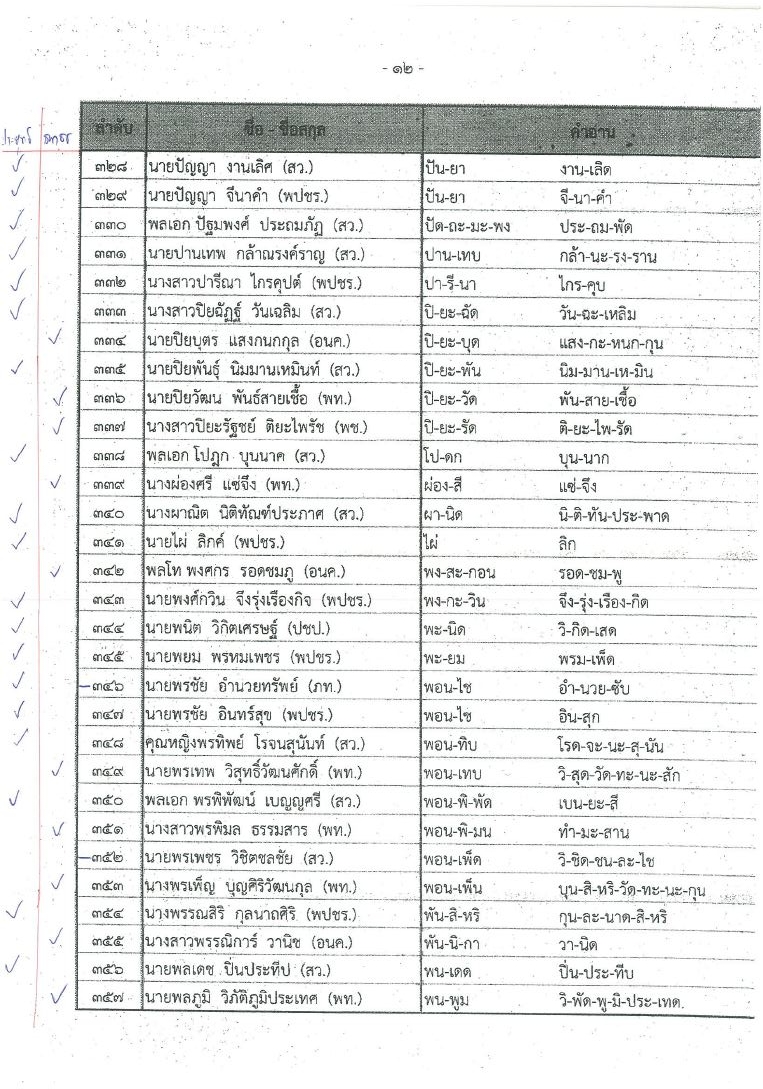 - ๑๒ -
ลำดับ ชื่อ - ชื่อสกุล คำอ่าน
๓๒๘ นายปัญญา งานเลิศ (สว.) ปัน-ยา งาน-เลิด
๓๒๙ นายปัญญา จีนาคำ (พปชร.) ปัน-ยา จี-นา-คำ
๓๓๐ พลเอก ปัฐมพงศ์ ประถมภัฏ (สว.) ปัด-ถะ-มะ-พง ประ-ถม-พัด
๓๓๑ นายปานเทพ กล้าณรงค์ราญ (สว.) ปาน-เทบ กล้า-นะ-รง-ราน
๓๓๒ นางสาวปารีณา ไกรคุปต์ (พปชร.) ปา-รี-นา ไกร-คุบ
๓๓๓ นางสาวปิยฉัฏฐ์ วันเฉลิม (สว.) ปิ-ยะ-ฉัด วัน-ฉะ-เหลิม
๓๓๔ นายปิยบุตร แสงกนกกุล (อนค.) ปิ-ยะ-บุด แสง-กะ-หนก-กุน
๓๓๕ นายปิยพันธุ์ นิมมานเหมินท์ (สว.) ปิ-ยะ-พัน นิม-มาน-เห-มิน
๓๓๖ นายปิยวัฒน พันธ์สายเชื้อ (พท.) ปิ-ยะ-วัด พัน-สาย-เชื้อ
๓๓๗ นางสาวปิยะรัฐชย์ ติยะไพรัช (พช.) ปิ-ยะ-รัด ติ-ยะ-ไพ-รัด
๓๓๘ พลเอก โปฎก บุนนาค (สว.) โป-ดก บุน-นาก
๓๓๙ นางผ่องศรี แซ่จึง (พท.) ผ่อง-สี แซ่-จึง
๓๔๐ นางผาณิต นิติทัณฑ์ประภาศ (สว.) ผา-นิด นิ-ติ-ทัน-ประ-พาด
๓๔๑ นายไผ่ ลิกค์ (พปชร.) ไผ่ ลิก
๓๔๒ พลโท พงศกร รอดชมภู (อนค.) พง-สะ-กอน รอด-ชม-พู
๓๔๓ นายพงศ์กวิน จึงรุ่งเรืองกิจ (พปชร.) พง-กะ-วิน จึง-รุ่ง-เรือง-กิด
๓๔๔ นายพนิต วิกิตเศรษฐ์ (ปชป.) พะ-นิด วิ-กิด-เสด
๓๔๕ นายพยม พรหมเพชร (พปชร.) พะ-ยม พรม-เพ็ด
๓๔๖ นายพรชัย อำนวยทรัพย์ (ภท.) พอน-ไช อำ-นวย-ซับ
๓๔๗ นายพรชัย อินทร์สุข (พปชร.) พอน-ไช อิน-สุก
๓๔๘ คุณหญิงพรทิพย์ โรจนสุนันท์ (สว.) พอน-ทิบ โรด-จะ-นะ-สุ-นัน
๓๔๙ นายพรเทพ วิสุทธิ์วัฒนศักดิ์ (พท.) พอน-เทบ วิ-สุด-วัด-ทะ-นะ-สัก
๓๕๐ พลเอก พรพิพัฒน์ เบญญศรี (สว.) พอน-พิ-พัด เบน-ยะ-สี
๓๕๑ นางสาวพรพิมล ธรรมสาร (พท.) พอน-พิ-มน ทำ-มะ-สาน
๓๕๒ นายพรเพชร วิชิตชลชัย (สว.) พอน-เพ็ด วิ-ชิด-ชน-ละ-ไช
๓๕๓ นางพรเพ็ญ บุญศิริวัฒนกุล (พท.) พอน-เพ็น บุน-สิ-หริ-วัด-ทะ-นะ-กุน
๓๕๔ นางพรรณสิริ กุลนาถศิริ (พปชร.) พัน-สิ-หริ กุน-ละ-นาด-สิ-หริ
๓๕๕ นางสาวพรรณิการ์ วานิช (อนค.) พัน-นิ-กา วา-นิด
๓๕๖ นายพลเดช ปิ่นประทีป (สว.) พน-เดด ปิ่น-ประ-ทีบ
๓๕๗ นายพลภูมิ วิภัติภูมิประเทศ (พท.) พน-พูม วิ-พัด-พู-มิ-ประ-เทด